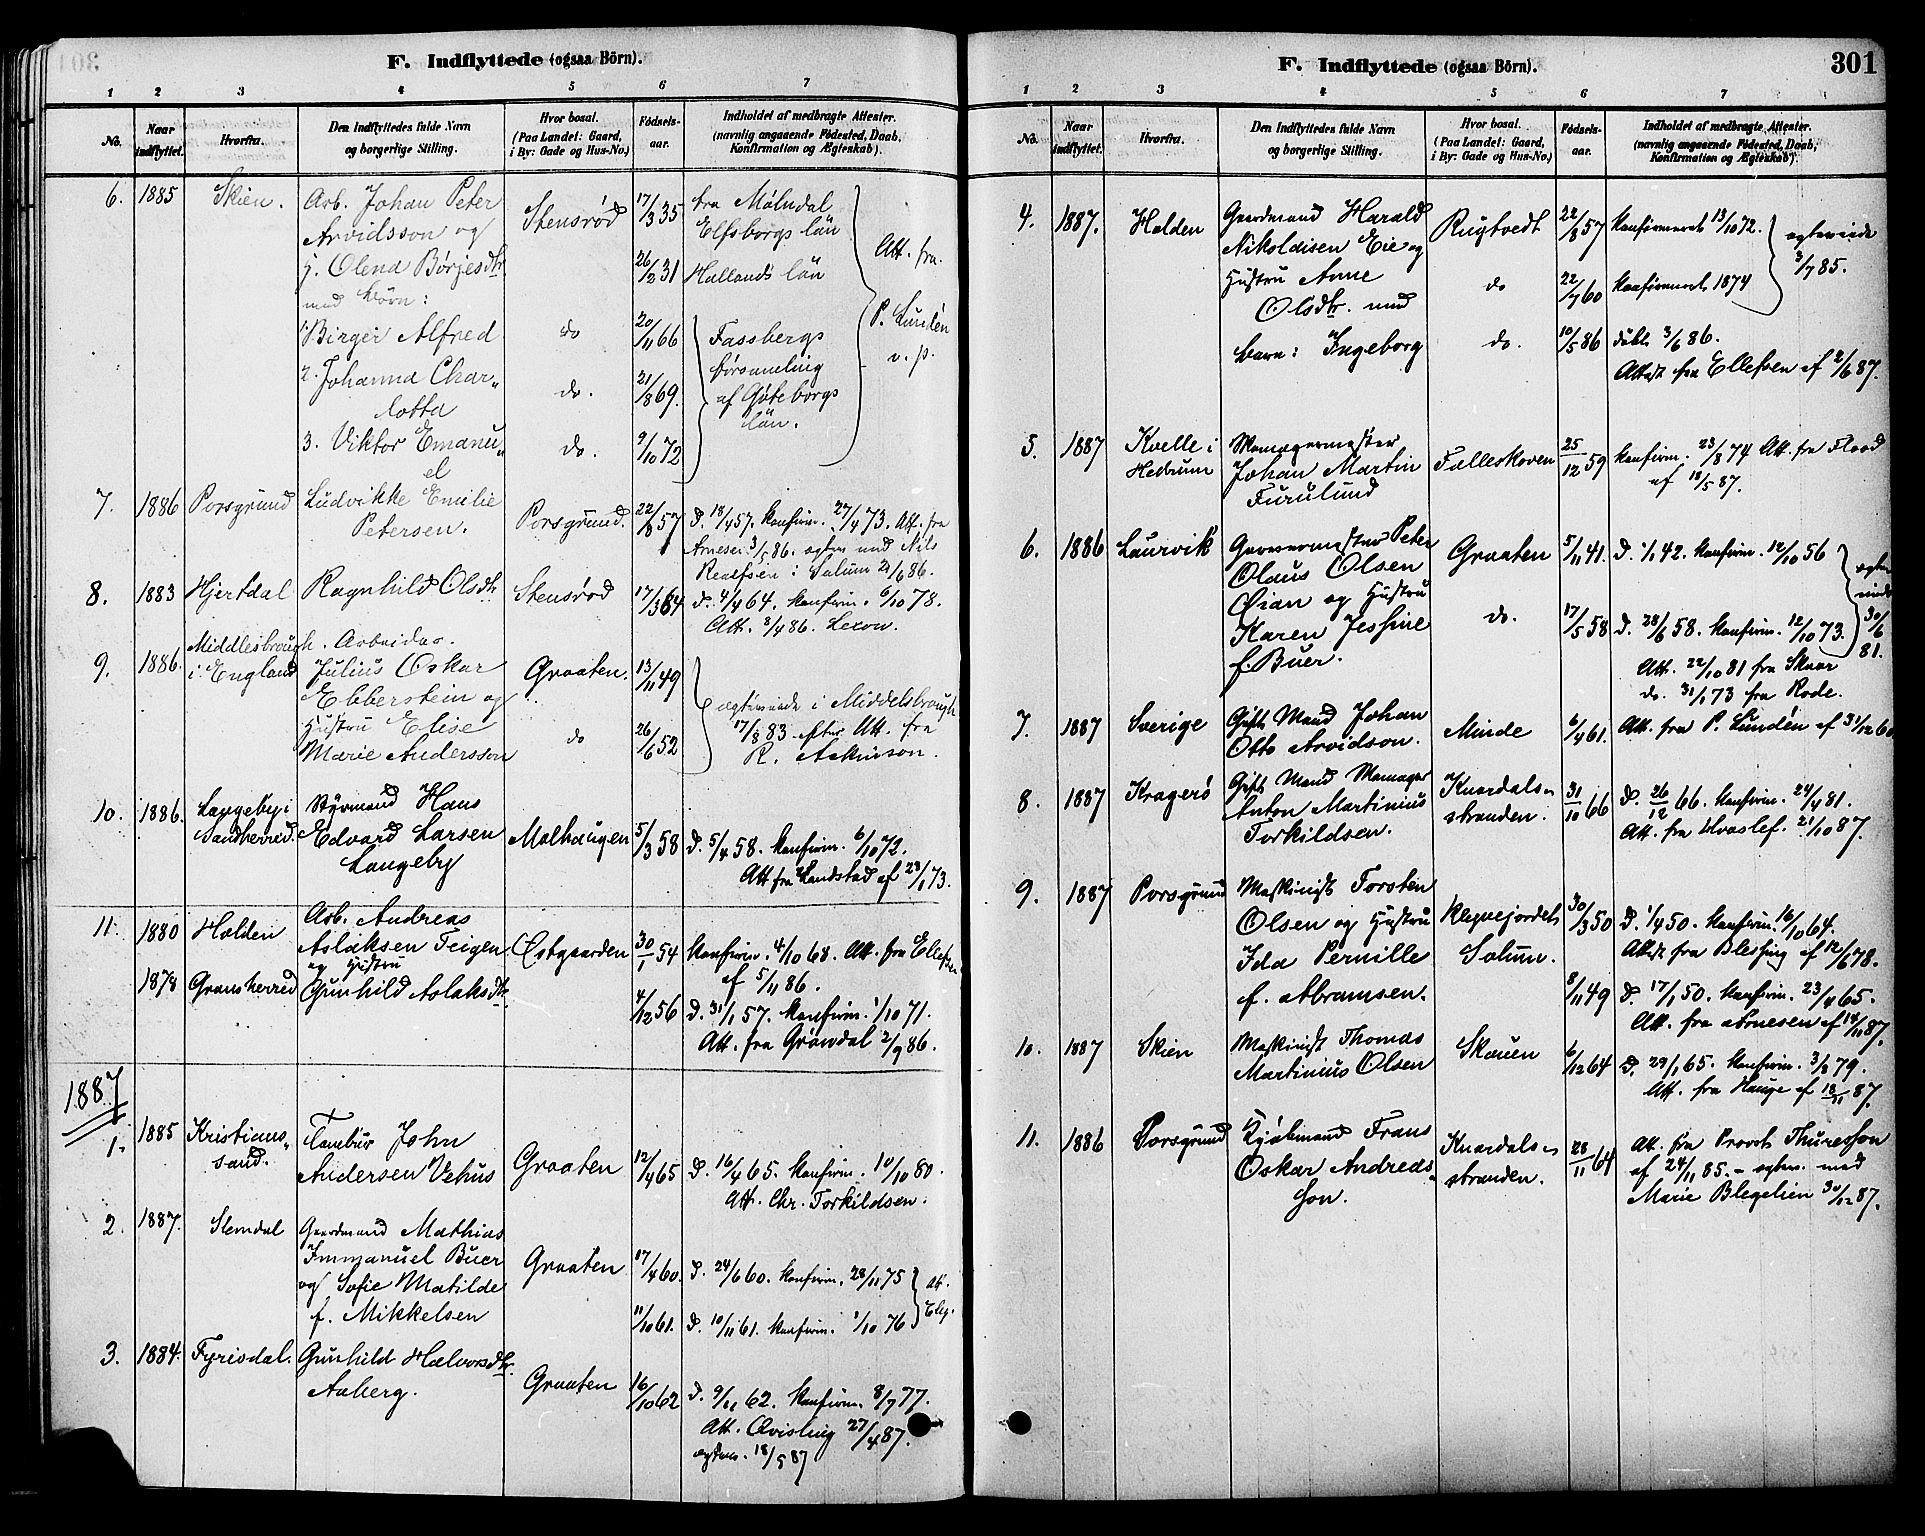 F. Indflyttede (ogsaa Börn).
1 2 3 4 5 6 7
No. Naar indflyttet. Hvorfra. Den Indflyttedes fulde Navn og borgerlige Stilling. Hvor bosat. (Paa Landet: Gaard, i By: Gade og Hus-No.) Fødsels-aar. Indholdet af medbragte Attester. (navnlig angaaende Fødested, Daab, Konfirmation og Ægteskab).
6. 1885 Skien. Arb. Johan Peter Stensrød 17/3 35 fra Mölndal
Arvidsson og Elfsborgs län
j. Olena Börjesdtr 26/2 31 Hallands län Att. fra
med börn:
1. Birger Alfred do 20/11 66 Fassbergs P. Lundén
2. Johanna Char- do. 21/8 69. församling v. p.
lotta af Göteborgs
3. Viktor Emanu- do. 9/10 72 län.
el
7. 1886 Porsgrund Ludvikke Emilie Porsgrund. 22/8 57 D. 18/4 57. konfirm. 27/4 73. Att. fra
Petersen. Arnesen 3/5 86. egtev. med Nils
Realfsen i Solum 21/6 86.
8. 1883 Hjertdal Ragnhild Olsdtr Stensrød 17/3 64 D. 4/4 64. konfirm. 6/10 78.
Att. 3/4 86. Lexow.
9. 1886. Middlesbrough Arbeider.
i England Julius Oskar Graaten. 13/11 49
Ebberstein og egteviede i Middelsbrough
Hustru Elise do 26/6 52 17/8 83 efter Att. fra
Marie Andersson R. Askinson.
10. 1886. Langeby i Styrmand Hans
Sandherred. Edvard Larsen Molhaugen 5/3 58 D. 5/4 58. konfirm. 6/10 72.
Langeby Att fra Landstad af 23/1 73.
11. 1880 Holden Arb. Andreas
Aslaksen Teigen Østgaarden 30/1 54 konfirm. 4/10 68. Att. fra Ellefsen
og Hustru af 5/11 86.
1878 Gransherred Gunhild Aslaksdtr. 4/12 56 D. 31/1 57. konfirm. 1/10 71.
Att. fra Gröndal 2/9 86.
1887
1. 1885 Kristians- Tambur John
sand. Andersen Vehus Graaten 12/4 65 D. 16/4 65. konfirm. 10/10 80.
Att. Chr. Torkildsen.
2. 1887. Slemdal Gaardmand Mathias
Immanuel Buer Graaten 17/4 60. D. 24/6 60. konfirm. 28/11 75 Att.
og Sofie Matilde
f. Mikkelsen 11/10 61. D. 10/11 61. konfirm. 1/10 76
3. 1884. Fyrisdal. Gunhild Halvorsdtr.
Aaberg. Graaten 16/10 62 D. 9/11 62. konfirm. 8/7 77.
Att. Qvisling 27/4 87.
egtev. 18/5 87
F. Indflyttede (ogsaa Börn). 301
1 2 3 4 5 6 7
No. Naar indflyttet. Hvorfra. Den Indflyttedes fulde Navn og borgerlige Stilling. Hvor bosat. (Paa Landet: Gaard, i By: Gade og Hus-No.) Fødsels-aar. Indholdet af medbragte Attester. (navnlig angaaende Fødested, Daab, Konfirmation og Ægteskab).
4. 1887. Holden Gaardmand Harald Rugtvedt 22/8 57 konfirmeret 13/10 72. egteviede
Nikolaisen Eie og 3/7 85.
Hustru Anne do 22/7 60 konfirmeret 1874
Olsdtr. med
barn: Ingeborg do. 10/5 86 döbt 3/6 86.
Attest fra Ellefsen af 2/6 87.
5. 1887 Kvelle i
Hedrum Johan Martin Fælleskoven 25/12 59 konfirm. 23/8 74 Att. fra Flood
Furulund af 18/5 87.
6. 1886 Laurvik Garvermester Peter Graaten 5/11 41. D. 1/1 42. konfirm. 12/10 56
Olaus Olsen egte-
Øian og Hustru viede
Karen Jessine do. 17/5 58 D. 28/6 58. konfirm. 12/10 73. 30/6
f. Buer. Att. 22/10 81 fra Skaar 81.
do. 31/1 73 fra Rode.
7. 1887 Sverige Gift Mand Johan Minde 6/4 61. Att. fra P. Lundén af 31/12 60
Otto Arvidson.
8. 1887 Kragerö Gift Mand Knardals- 31/10 66 D. 26/12 66. konfirm. 24/4 81.
Anton Martinius stranden. Att. fra Hvoslef. 21/10 87.
Torkildsen.
9. 1887 Porsgrund Maskinist Torsten Klevejordet 30/3 50 D. 1/4 50. konfirm. 16/10 64.
Olsen og Hustru Solum. Attest fra Blessing af 12/6 78.
Ida Pernille
f. Abramsen. 8/11 49 D. 17/1 50. konfirm. 23/4 65.
Att. fra Arnesen af 14/11 87.
10. 1887 Skien Maskinist Thomas Skauen 6/12 64 D. 29/1 65. konfirm. 3/8 79.
Martinius Olsen Att. fra Hauge af 18/11 87.
11. 1886 Porsgrund Kjöbmand Frans Knardals- 28/11 64 Att. fra Provst Thuresson
Oskar Andreas- stranden. af 24/11 85. - egtev. med
son. Marie Blegelien 30/12 87.